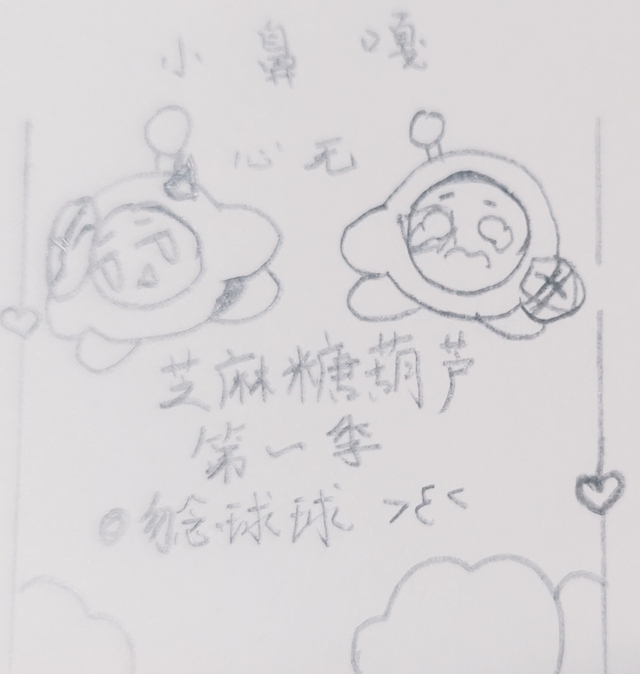 小鼻嘎
心无
芝麻糖葫芦
第一季
球球 >ε<